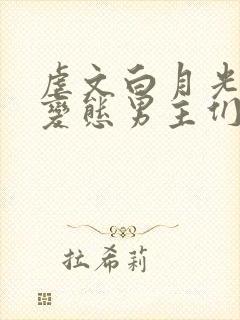 虐文白月光
變態男主们
拉希莉